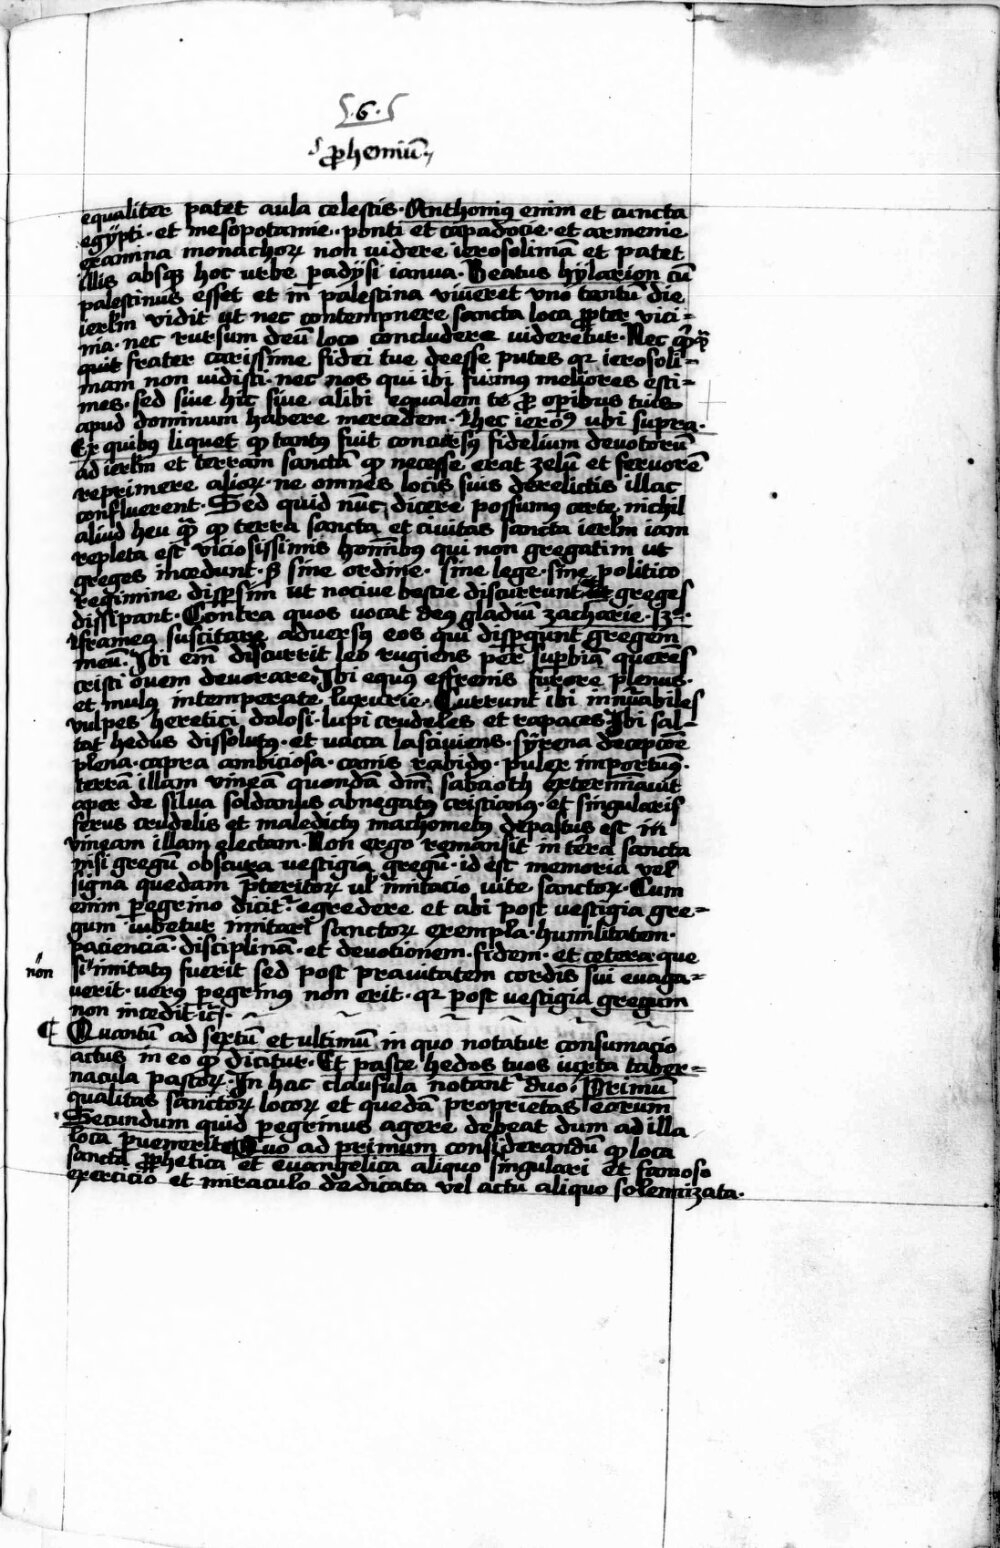 .6.
.ꝓhemiū.
equaliter patet aula celestis. Anthoniꝰ enim et cuncta
egÿpti. et mesopotamie. ponti et capadocie. et armenie
examina monachoꝝ non videre ierosolimā et patet
illis absqꝫ hoc vrbe padÿsi ianua. Beatus hÿlarion cū
palestinus esset et in palestina viueret vno tantū die
ierłm vidit ut nec contempnere sancta loca ꝓpter vici-
ma. nec rursum deū loco concludere videretur. Nec
quit frater carissime fidei tue deesse putes qꝛ ierosoli-
mam non vidisti. nec nos qui ibi fuimus meliores esti-
mes. sed siue hic siue alibi equalem te ꝓ oꝑibus tuis
apud dominum habere mercedem. hec ieroꝰ ubi supra.
Ex quibꝰ liquet ꝙ tantꝰ fuit concursꝰ fidelium deuotorū
ad ierłm et terram sanctā ꝙ necesse erat zelū et feruorē
reprimere alioꝝ. ne omnes locis suis derelictis illac
confluerent. Sed quid nūc dicere possumus certe nichil
aliud heu q̄ ꝙ terra sancta et ciuitas sancta ierłm iam
repleta est viciosissimis homībus qui non gregatim ut
greges incedunt. ꝫ sine ordine. sine lege. sine politico
regimine disꝑsim ut nociue bestie discurrunt greges
dissipant. Contra quos vocat deꝰ gladiū zacharie. 13ᵒ.
framea suscitare aduersꝰ eos qui disꝑgunt gregem
meū. Ibi em̄ discurrit leo rugiens per suꝑbiā querēs
cristi ouem deuorare. Ibi equꝰ effrenis furore plenus.
et mulꝰ intemperate luxurie. Currunt ibi innūabiles
vulpes heretici dolosi. lupi crudeles et rapaces Ibi sal-
tat hedus dissolutꝰ. et vacca lasciuiens. sÿrena decepcōe
plena. capra ambiciosa. canis rabidꝰ. pulex importunꝰ.
terrā illam vineā quondā dm̄i sabaoth exterminauit
aper de silua soldanus abnegatꝰ cristianꝰ. et singularis
ferus crudelis et maledictꝰ machometꝰ depastus est in
vineam illam electam. Non ergo remansit in tera sancta
nisi gregū obscura vestigia gregū. id est memoria vel
signa quedam p̄teritoꝝ ul̓ imitacio vite sanctoꝝ. Cum
enim ꝑegrino dicit᷑ egredere et abi post vestigia gre-
gum iubetur imitari sanctoꝝ exempla. humilitatem.
pacienciā. disciplinā. et deuocionem. fidem. et cetera que
non
si imitatꝰ fuerit sed post prauitatem cordis sui euaga-
uerit. verꝰ ꝑegrinꝰ non erit. qꝛ post vestigia gregum
non incedit
¶ Quantū ad sextū et ultimū in quo notatur consumacio
actus in eo ꝙ dicitur. Et pasce hedos tuos iuxta taber-
nacula pastoꝝ. In hac clausula notant᷑ duo. Primū
qualitas sanctoꝝ locoꝝ et quedā proprietas eorum
Secundum quid ꝑegrinus agere debeat dum ad illa
loca ꝑuenerit. Quo ad primum considerandū ꝙ loca
sancta ꝓphetica et euangelica aliquo singulari et famoso
exercicio et miraculo dedicata vel actu aliquo solemnizata.